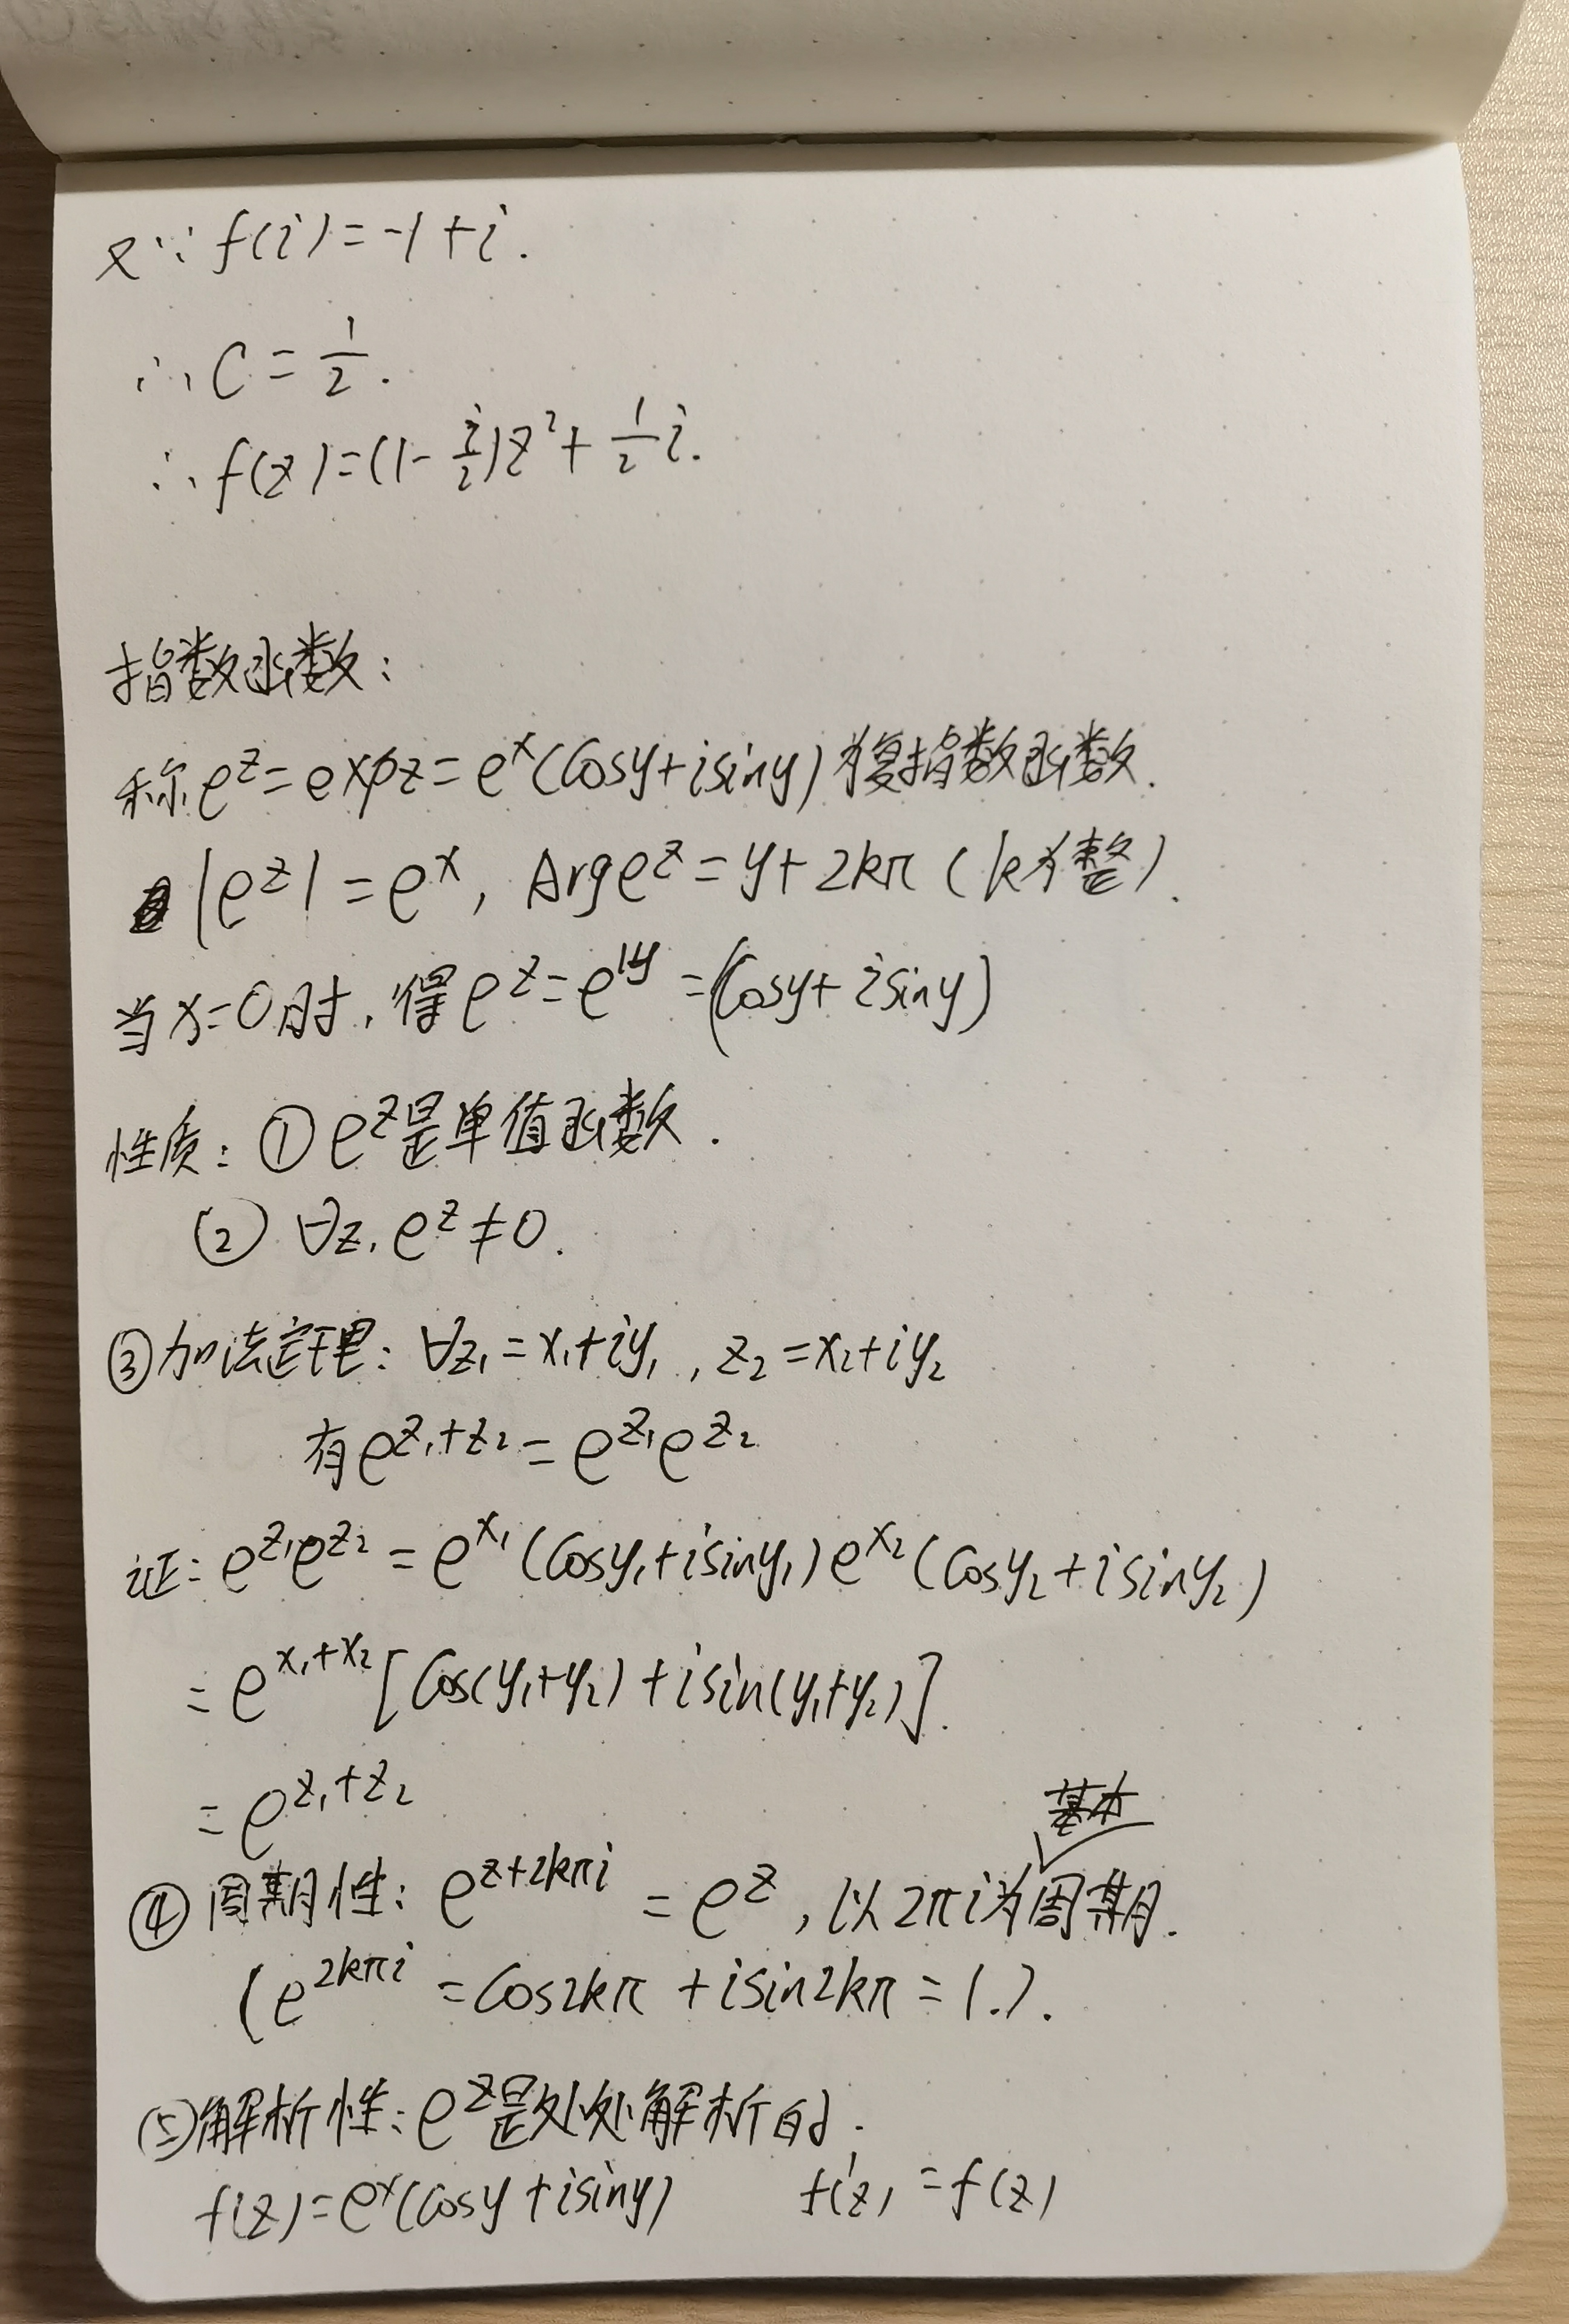 又∵ f(i)=-1+i.
∴ C=1/2.
∴ f(z)=(1-i/2)z²+1/2i.
指数函数:
称e^z=expz=e^x(cosy+isiny)为复指数函数.
|e^z|=e^x, Arge^z=y+2kπ(k为整).
当x=0时,得e^z=e^iy=(cosy+isiny)
性质:①e^z是单值函数.
② ∀z, e^z≠0.
③加法定理: ∀z₁=x₁+iy₁, z₂=x₂+iy₂
有e^(z₁+z₂)=e^z₁e^z₂
证:e^z₁e^z₂=e^x₁(cosy₁+isiny₁)e^x₂(cosy₂+isiny₂)
=e^(x₁+x₂)[cos(y₁+y₂)+isin(y₁+y₂)].
=e^(z₁+z₂)
基本
④周期性: e^(z+2kπi)=e^z, 以2πi为周期.
(e^(2kπi)=cos2kπ+isin2kπ=1.).
⑤解析性:e^z是处处解析的.
f(z)=e^x(cosy+isiny) f'(z)=f(z)